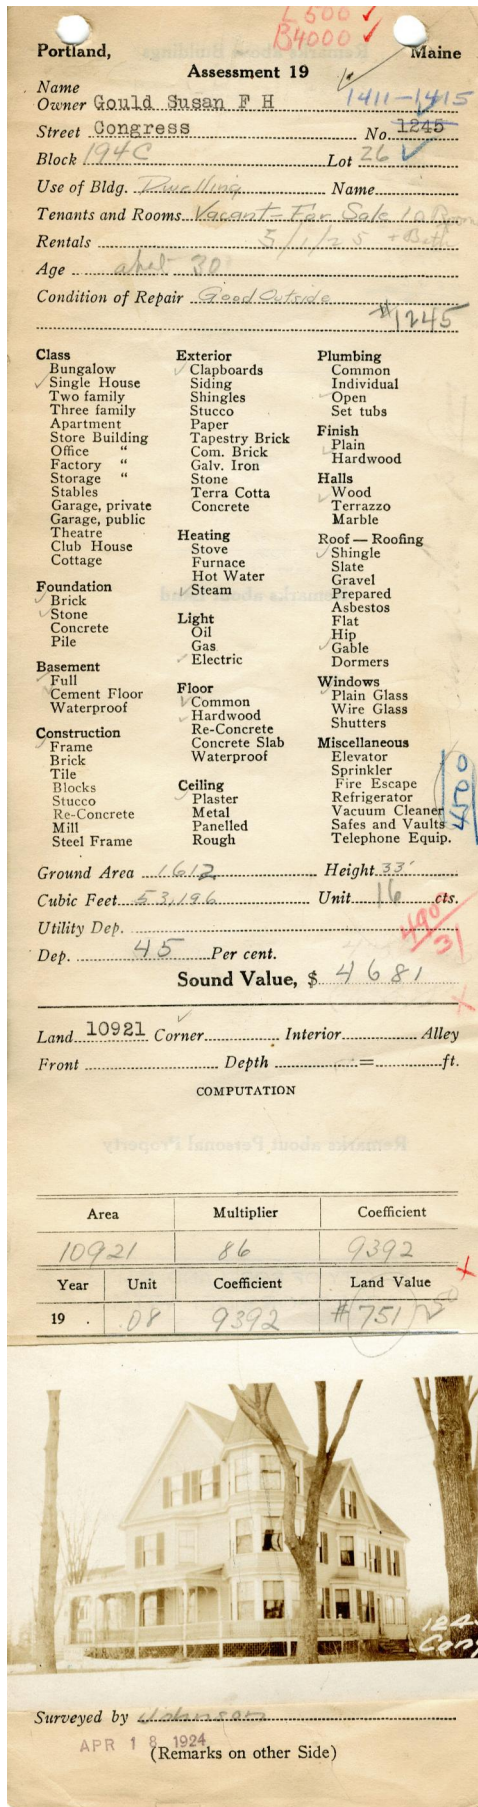 L 500 ✓
B4000 ✓
Portland, Maine
Assessment 19
Name
Owner Gould Susan F H 1411-1415
Street Congress No. 1245
Block 194C Lot 26 ✓
Use of Bldg. Dwelling Name
Tenants and Rooms Vacant = For Sale 10 Room
Rentals 5/1/25 + Bath
Age abt 30
Condition of Repair Good Outside
#1245
Class
Bungalow
Single House
Two family
Three family
Apartment
Store Building
Office "
Factory "
Storage "
Stables
Garage, private
Garage, public
Theatre
Club House
Cottage
Foundation
Brick
Stone
Concrete
Pile
Basement
Full
Cement Floor
Waterproof
Construction
Frame
Brick
Tile
Blocks
Stucco
Re-Concrete
Mill
Steel Frame
Exterior
Clapboards
Siding
Shingles
Stucco
Paper
Tapestry Brick
Com. Brick
Galv. Iron
Stone
Terra Cotta
Concrete
Heating
Stove
Furnace
Hot Water
Steam
Light
Oil
Gas
Electric
Floor
Common
Hardwood
Re-Concrete
Concrete Slab
Waterproof
Ceiling
Plaster
Metal
Panelled
Rough
Plumbing
Common
Individual
Open
Set tubs
Finish
Plain
Hardwood
Halls
Wood
Terrazzo
Marble
Roof — Roofing
Shingle
Slate
Gravel
Prepared
Asbestos
Flat
Hip
Gable
Dormers
Windows
Plain Glass
Wire Glass
Shutters
Miscellaneous
Elevator
Sprinkler
Fire Escape
Refrigerator
Vacuum Cleaner
Safes and Vaults
Telephone Equip.
4500
Ground Area 1612 Height 33'
Cubic Feet 53,196 Unit 16 cts.
Utility Dep.
4900/31
Dep. 45 Per cent.
Sound Value, $ 4681
Land 10921 Corner Interior Alley
Front Depth = ft.
COMPUTATION
Area Multiplier Coefficient
10921 86 9392
Year Unit Coefficient Land Value
19 . .08 9392 #751
Surveyed by Johnson
APR 18 1924
(Remarks on other Side)